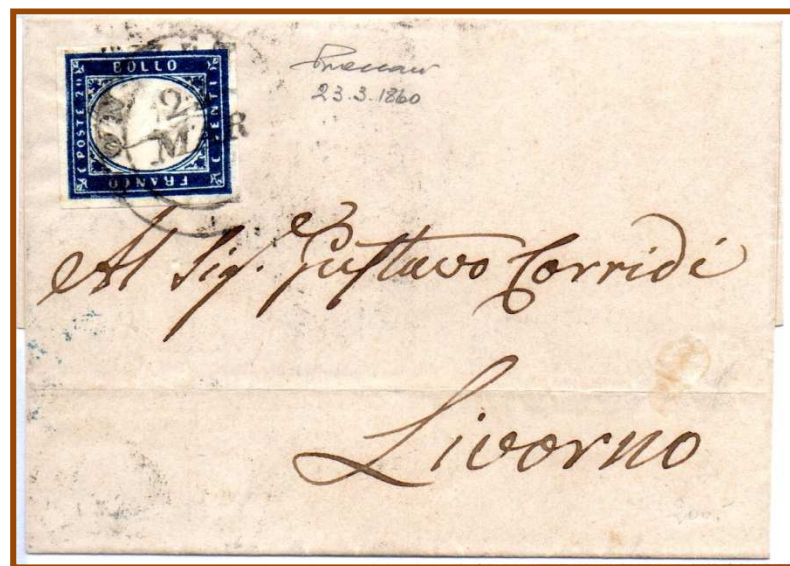 BOLLO
C. POSTE 20
CENTI
FRANCO
2
MAR
23.3.1860
Al Sig.r Gustavo Corridi
Livorno